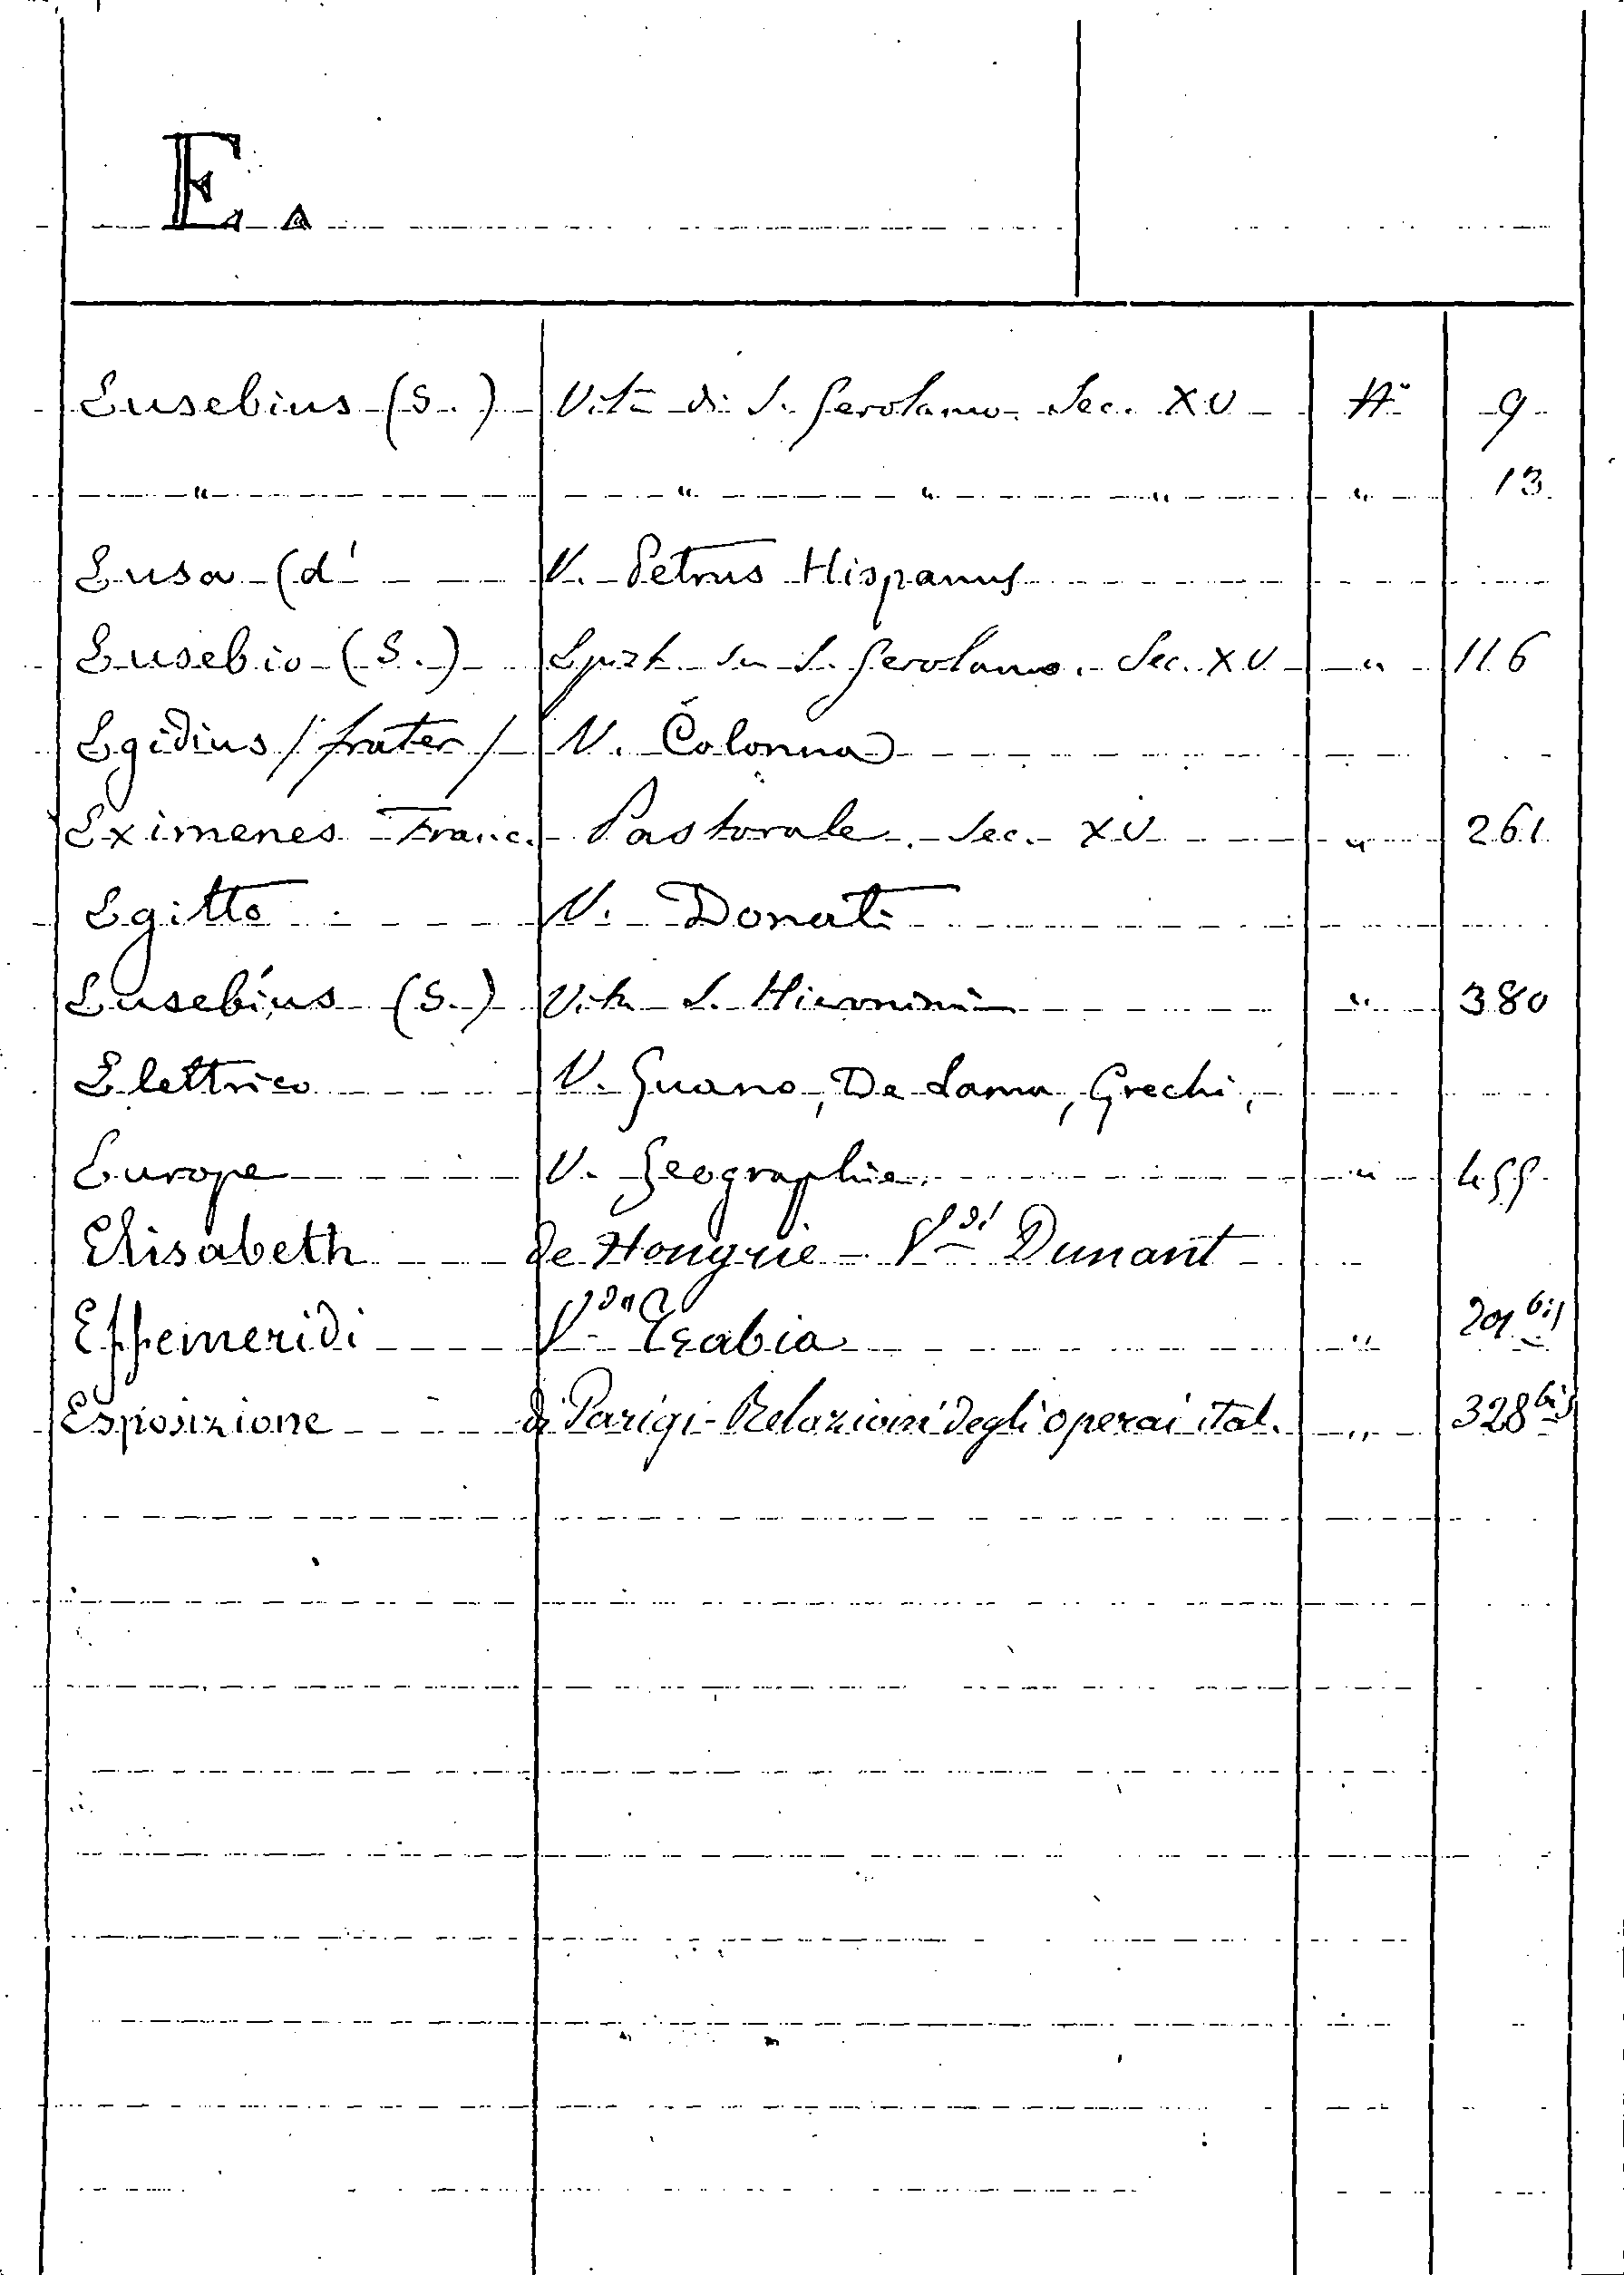 E.
Eusebius (S.) Vita di S. Gerolamo. Sec. XV 9
" " " " " 13
Eusa (d' V. Petrus Hispanus
Eusebio (S.) su S. Gerolamo. Sec. XV " 116
Egidius /frater/ V. Colonna
Eximenes Franc. Pastorale. Sec. XV " 261
Egitto V. Donati
Eusebius (S.) Vita S. Hieronimi " 380
Elettrico V. Guano, De Lama, Grechi,
Europe V. Geographie. " 455
Elisabeth de Hongrie - Vedi Dunant
Effemeridi Vedi Trabia " 201 bis
Esposizione di Parigi - Relazioni degli operai ital. " 328 bis